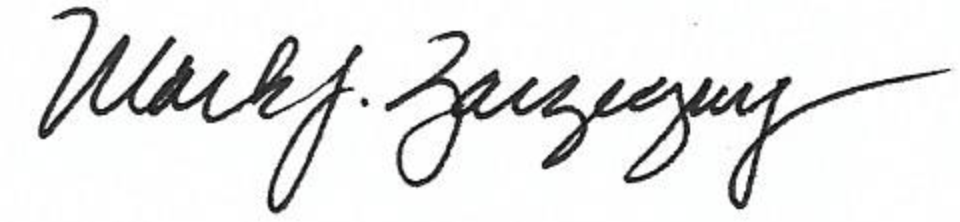 Mark J. Zarzeczny